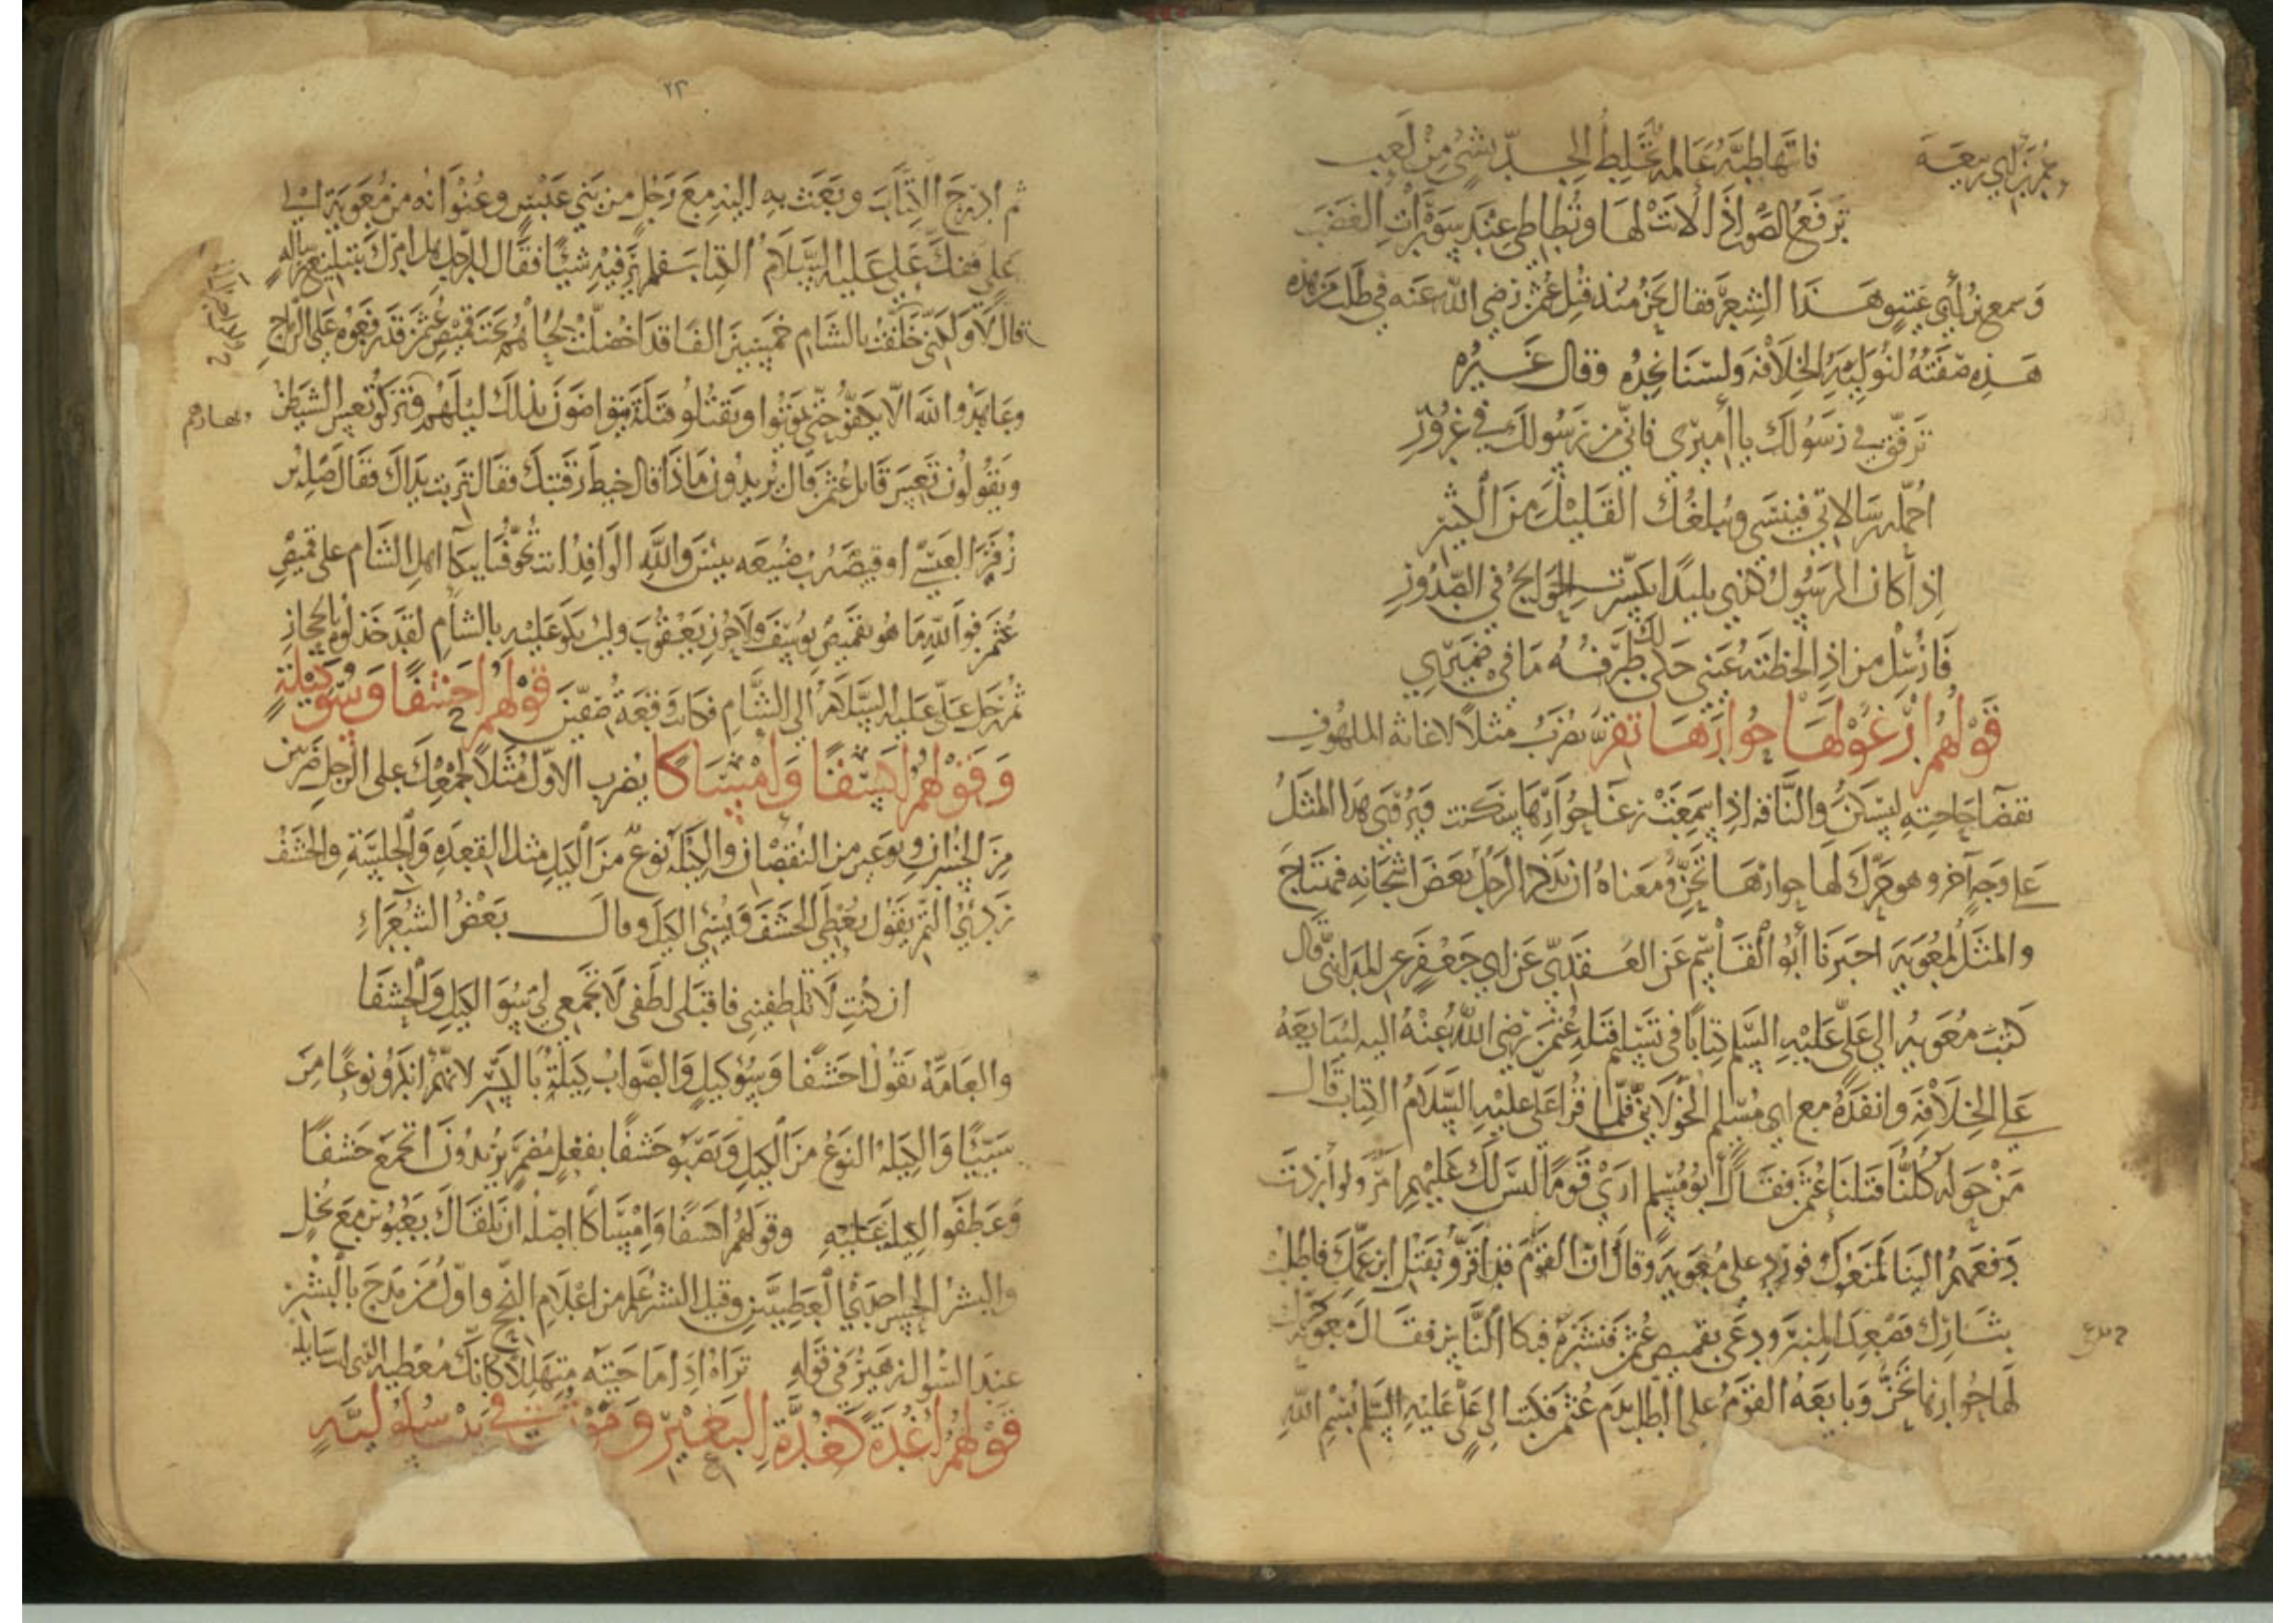 عمر بن أبي ربيعة فاتتها طبة عالمة تخلط الجد بشئ من لعب
ترفع الصوت اذا لانت لها وتطاطى عند سورات الغضب
وسمع بن أبي عتيق هذا الشعر فقال نحن منذ قتل عثمن رضي الله عنه في طلب من هذه
هذه صفته لنوليه الخلافة ولسنا نجده وقال غيره
ترفق في رسولك يا أميري فاني من رسولك في غرور
احمله رسالاتي فينسى ويبلغك القليل من الكثير
اذا كان الرسول كذي بليدا تكسرت الحوايج في الصدور
فارسل من اذا لحظته عيني حكى لك طرفه ما في ضميري
قولهم ارغوا لها حوارها تقر يضرب مثلا لاغاثة الملهوف
بقضا حاجته ليسكن والناقة اذا سمعت رغا حوارها سكنت ويروى هذا المثل
على وجه آخر وهو حرك لها حوارها تحن ومعناه ان تذكر الرجل بعض اشجانه فيهتاج
والمثل لمعوية اخبرنا أبو القاسم عن العقدي عن ابي جعفر عن المدايني قال
كتب معوية الي علي عليه السلم كتابا في تسليم قتلة عثمن رضي الله عنه اليه ليبايعه
على الخلافة وانفذه مع ابي مسلم الخولاني فلما قرا علي عليه السلام الكتاب قال
من حوله كلنا قتلنا عثمن فقال أبو مسلم ارى قوما ليس لك عليهم امر ولو أردت
دفعهم الينا لمنعوك فورد على معوية وقال ان القوم قد اقروا بقتل ابن عمك فاطلب
بثارك فصعد المنبر ودعى بقميص عثمن فنشره فبكا الناس فقال معوية حرك
لها حوارها تحن وبايعه القوم على الطلب بدم عثمن فكتب الى علي عليه السلم بسم الله
٢٣
ثم ادرج الكتاب وبعث به اليه مع رجل من بني عبس وعنوانه من معوية الى
علي ففك علي عليه السلام الكتاب فلم ير فيه شيئا فقال للرجل هل امرك بتبليغ رسالة
قال لا ولكني خلفت بالشام خمسين الفا قد اخضلت لحاهم تحت قميص عثمن قد رفعوه على الرماح
وعاهدوا الله الا يكفوا حتى يموتوا او يقتلوا قتلة يتواصون بذلك ليلهم
ويقولون قاتل عثمن قال يريدون ماذا قال خيط رقبتك فقال تربت يداك فقال صلة بن
زفر العبسي او قبيصة بن ضبيعة بيس والله الوافد انت تخوفنا ببكا اهل الشام على قميص
عثمن فوالله ما هو بقميص يوسف ولا حزن يعقوب ولين بكوا عليه بالشام لقد خذلوه بالحجاز
ثم رحل علي عليه السلام الى الشام فكانت وقعة صفين قولهم احشفا وسوء كيلة
وقولهم اهشفا وامساكا يضرب الاول مثلا لجمعك على الرجل ضربين
من الخسران ونوعين من النقصان والكيلة نوع من الكيل مثل القعدة والجلسة والحشف
ردئ التمر يقول يعطى الحشف ويسئ الكيل وقال بعض الشعراء
ان كنت لا تلطفيني فاقبلى لطفى لا تجمعي لي سوء الكيل والحشفا
والعامة تقول احشفا وسوء كيل والصواب كيلة بالكسر لانهم انكروا نوعا من
سيئا والكيلة النوع من الكيل ونصبوا حشفا بفعل مضمر يريدون اتجمع حشفا
وعطفوا الكيلة عليه وقولهم اهشفا وامساكا اصله ان تلقاك بعبوس مع بخل
والبشر الحسن احد العطيين وقيل البشر علم من اعلام النجح واول من مدح بالبشر
عند السوال زهير في قوله تراه اذا ما جيته متهللا كانك معطيه الذي انت سايله
قولهم اغدة كغدة البعير وموت في بيت سلولية